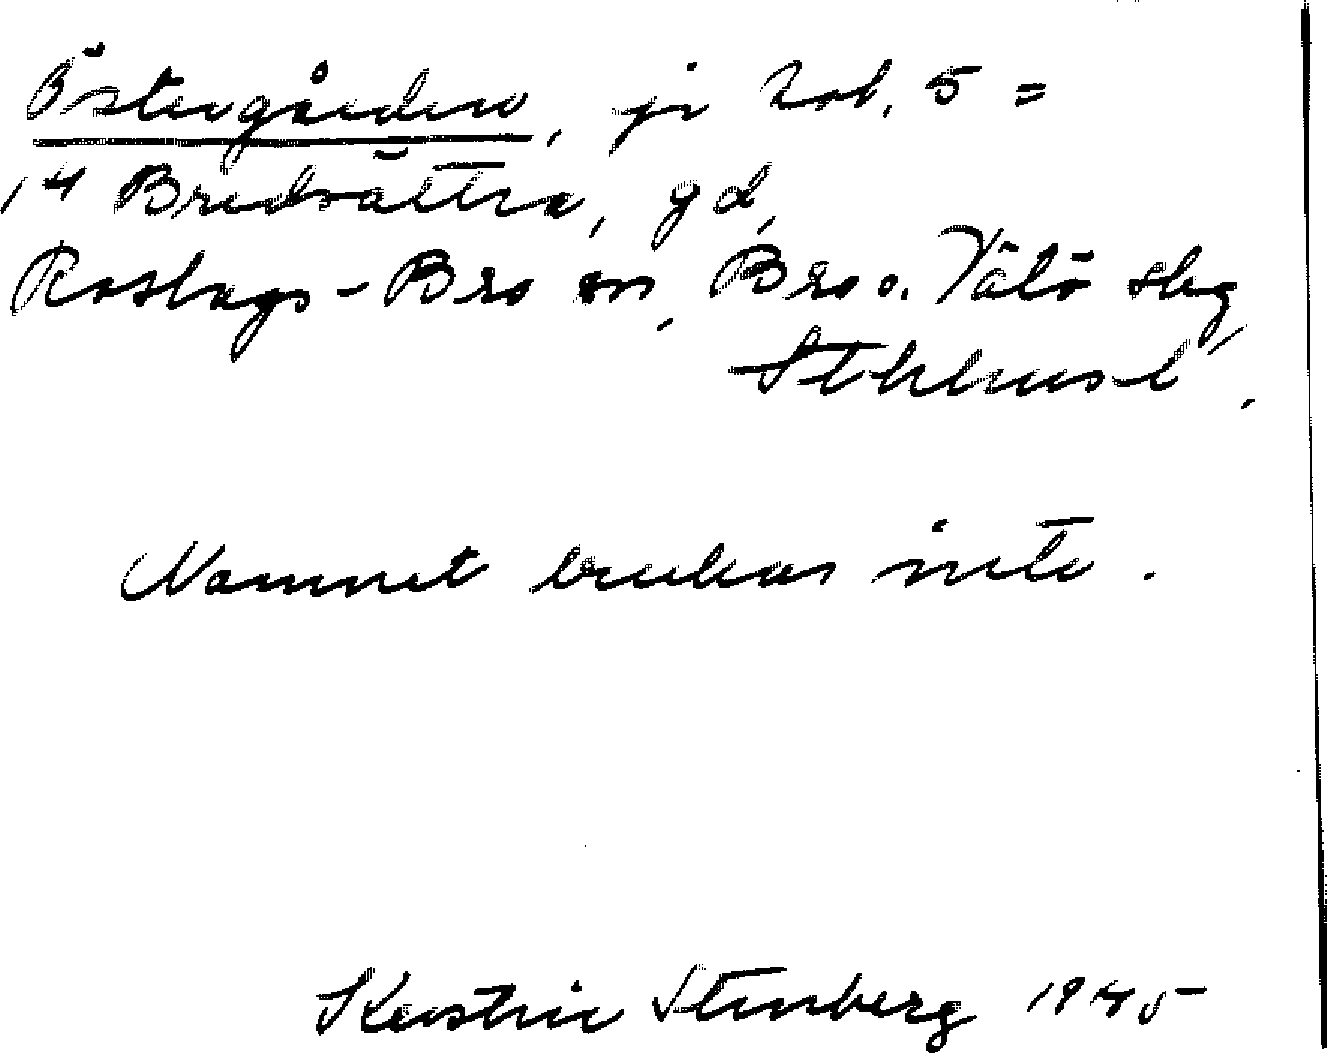 Östergården, jr kok. 5 =
14 Bredsättra, gd,
Roslags-Bro sn, Bro o. Vätö skg,
Sthlms l.
Namnet brukas inte.
Kerstin Stenberg 1945